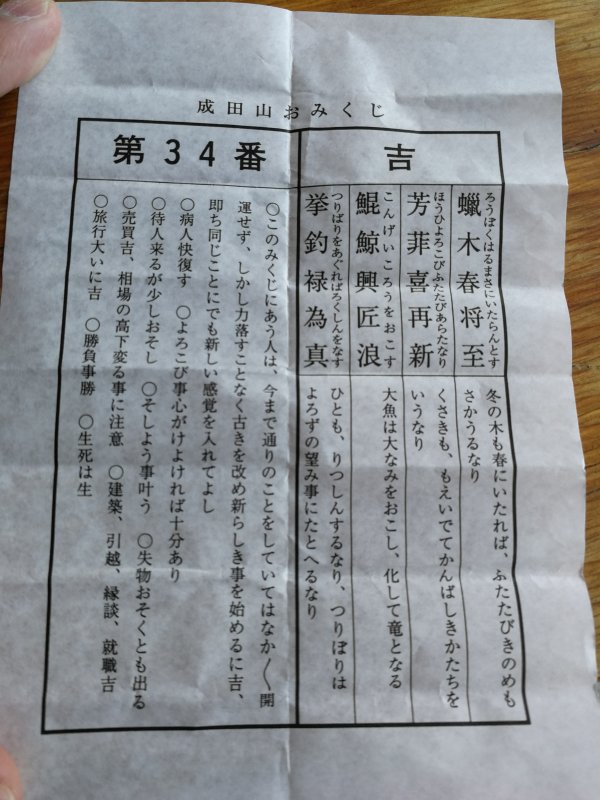 成田山おみくじ
吉
第34番
ろうぼくはるまさにいたらんとす
蠟木春将至
冬の木も春にいたれば、ふたたびきのめも
さかうるなり
ほうひよろこびふたたびあらたなり
芳菲喜再新
くさきも、もえいでてかんばしきかたちを
いうなり
こんげいころうをおこす
鯤鯨興匠浪
大魚は大なみをおこし、化して竜となる
つりばりをあぐればろくしんをなす
挙釣禄為真
ひとも、りつしんするなり、つりぼりは
よろずの望み事にたとへるなり
○このみくじにあう人は、今まで通りのことをしていてはなか〱開
運せず、しかし力落すことなく古きを改め新らしき事を始めるに吉、
即ち同じことにでも新しい感覚を入れてよし
○病人快復す ○よろこび事心がけよければ十分あり
○待人来るが少しおそし ○そしよう事叶う ○失物おそくとも出る
○売買吉、相場の高下変る事に注意 ○建築、引越、縁談、就職吉
○旅行大いに吉 ○勝負事勝 ○生死は生